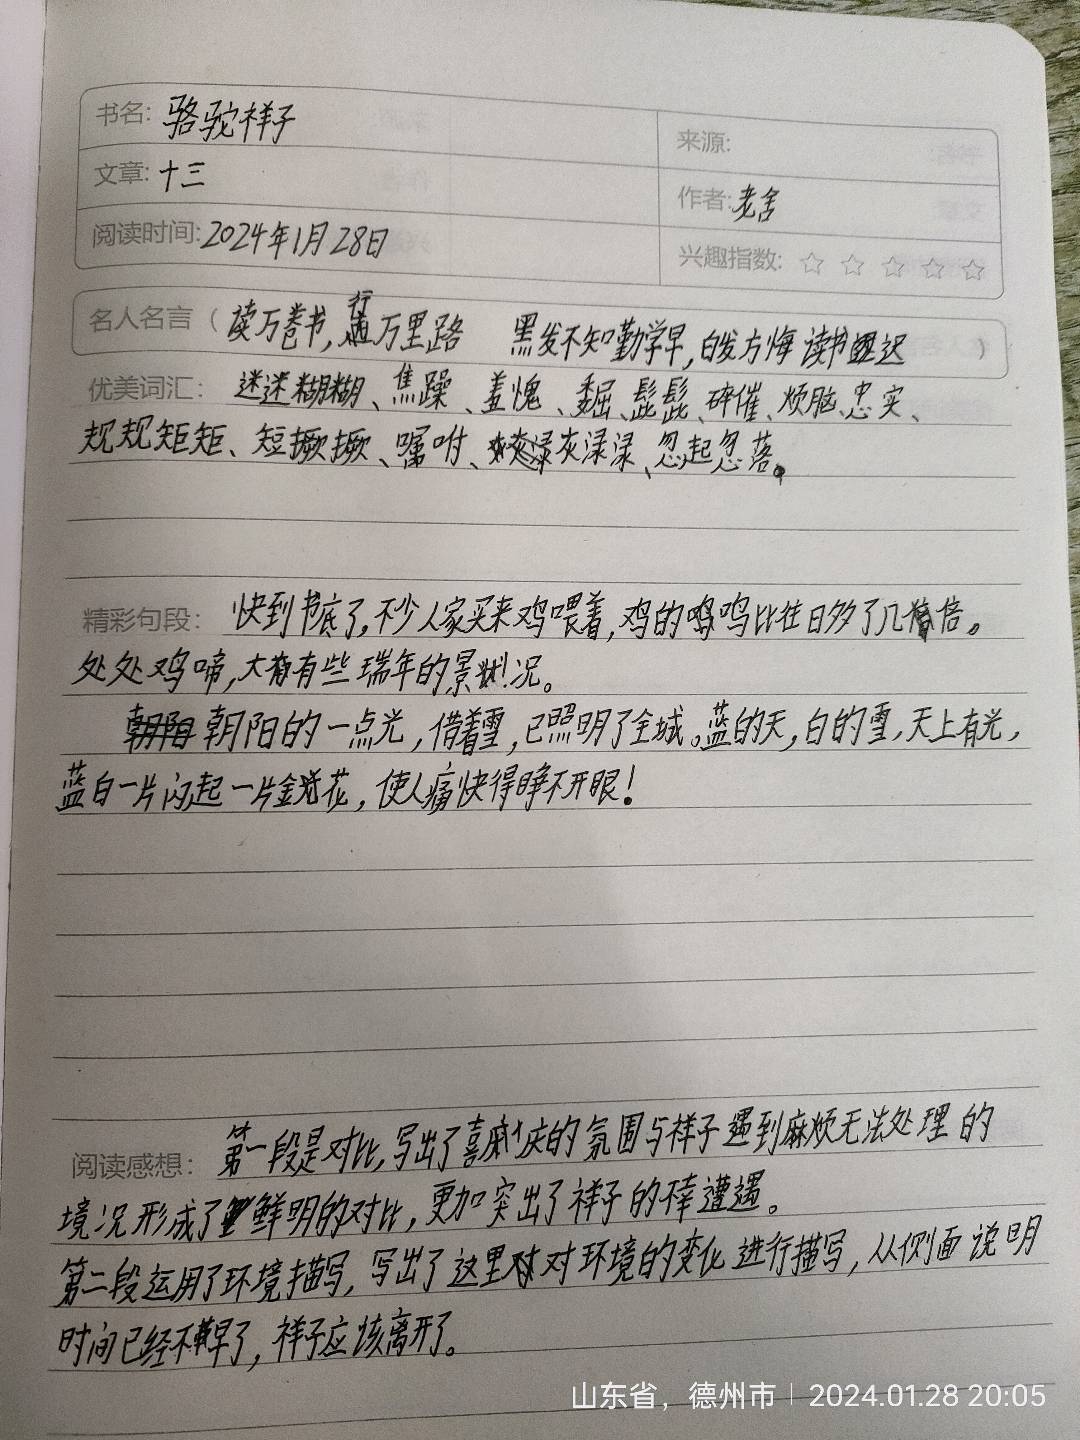 书名: 骆驼祥子
来源:
文章: 十三
作者: 老舍
阅读时间: 2024年1月28日
兴趣指数: ☆ ☆ ☆ ☆ ☆
名人名言（读万卷书,行万里路 黑发不知勤学早,白发方悔读书迟）
优美词汇: 迷迷糊糊、焦躁、羞愧、委屈、髭髭、碎催、烦脑、忠实、
规规矩矩、短撅撅、嘱咐、灰渌渌、忽起忽落。
精彩句段: 快到书底了,不少人家买来鸡喂着,鸡的鸣比往日多了几倍。
处处鸡啼,大有些瑞年的景况。
朝阳的一点光,借着雪,已照明了全城。蓝的天,白的雪,天上有光,
蓝白一片闪起一片金花,使人痛快得睁不开眼!
阅读感想: 第一段是对比,写出了喜庆的氛围与祥子遇到麻烦无法处理的
境况形成了鲜明的对比,更加突出了祥子的不幸遭遇。
第二段运用了环境描写,写出了这里对环境的变化进行描写,从侧面说明
时间已经不早了,祥子应该离开了。
山东省，德州市 | 2024.01.28 20:05